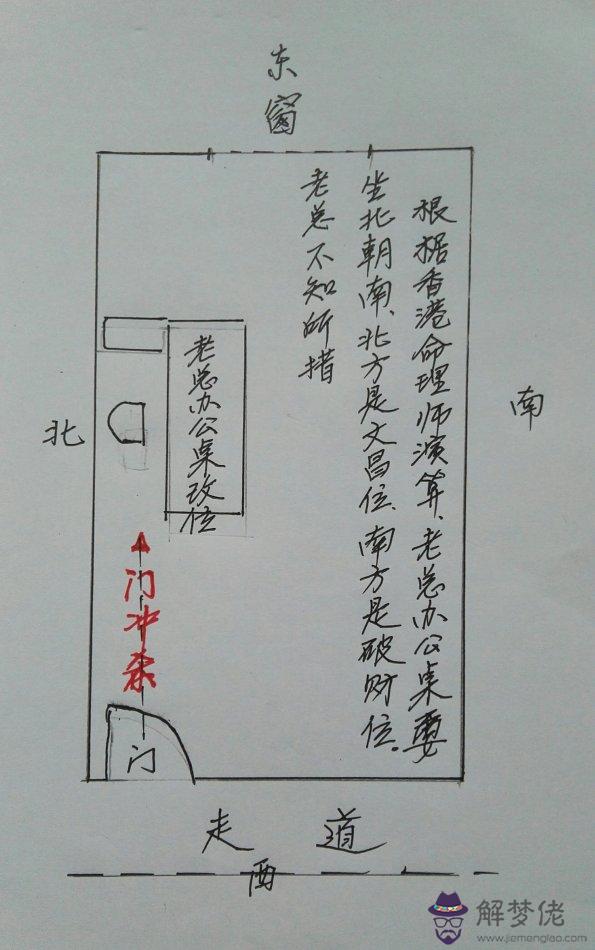 东
窗
根据香港命理师演算、老总办公桌要
坐北朝南、北方是文昌位、南方是破财位.
老总不知所措
老总办公桌攻位
北
南
门冲杀
门
走道
西
解梦佬
www.jiemenglao.com